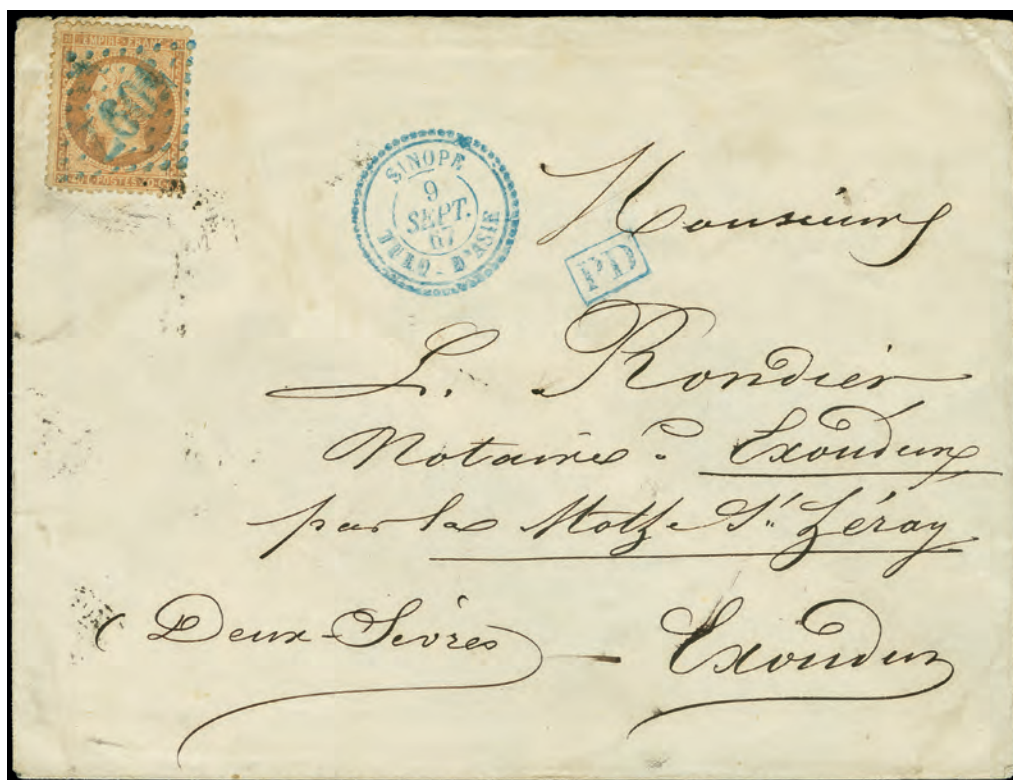 EMPIRE FRANC
POSTES
SINOPE
9
SEPT.
67
TURQ. D'ASIE
PD
Monsieur
L. Rondier
Notaire à Exoudun
par la Mothe St. Héray
(Deux-Sèvres) — Exoudun